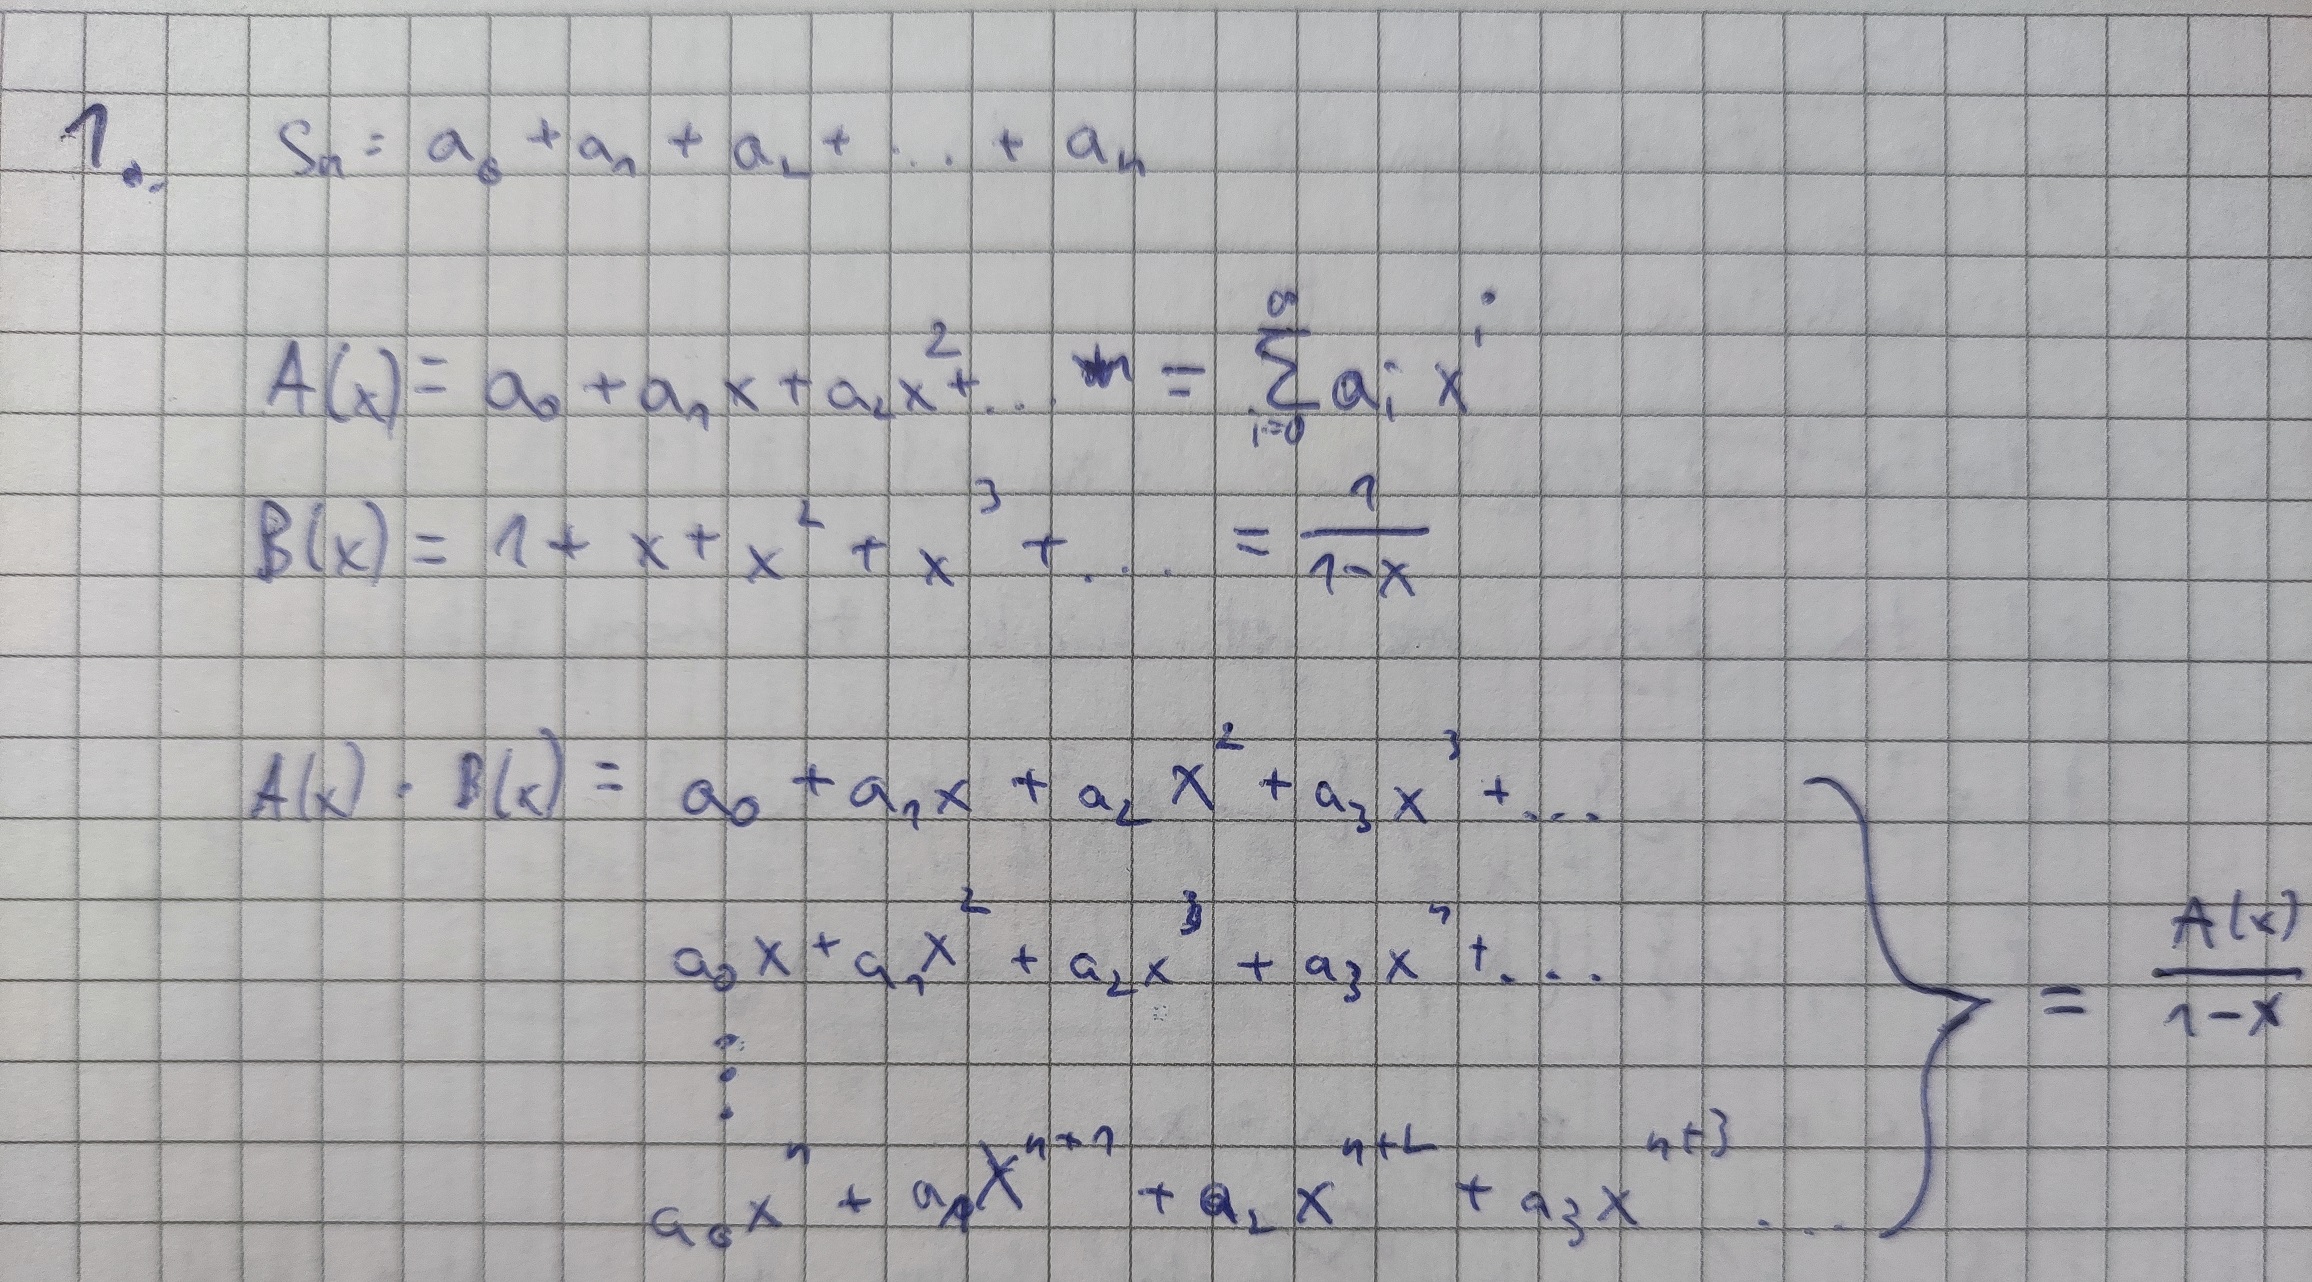 1. Sₙ = a₀ + a₁ + a₂ + ... + aₙ
A(x) = a₀ + a₁x + a₂x² + ... = ∑_{i=0}^{∞} aᵢ xⁱ
B(x) = 1 + x + x² + x³ + ... = \frac{1}{1-x}
A(x) · B(x) = a₀ + a₁x + a₂x² + a₃x³ + ...
a₀x + a₁x² + a₂x³ + a₃x⁴ + ...
⋮
a₀xⁿ + a₁xⁿ⁺¹ + a₂xⁿ⁺² + a₃xⁿ⁺³ ...
} = \frac{A(x)}{1-x}